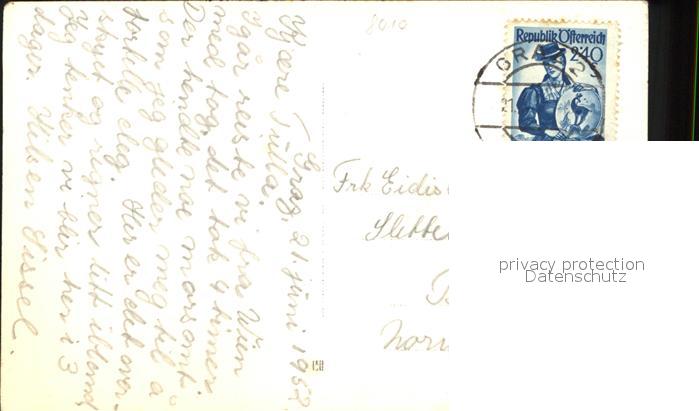 Graz, 21 juni 1952.
Kjære Tulla.
Igår reiste vi fra Wien
med tog, det tok 4 timer.
Der hendte noe morsomt
som jeg gleder meg til å
fortelle deg. Her er det over-
skyet og regner litt iblant.
Jeg tenker vi blir her i 3
dager. Hilsen Sissel.
8010
Republik Österreich
240
GRAZ 2
21.
Frk Eidis
Slette
Nor
privacy protection
Datenschutz